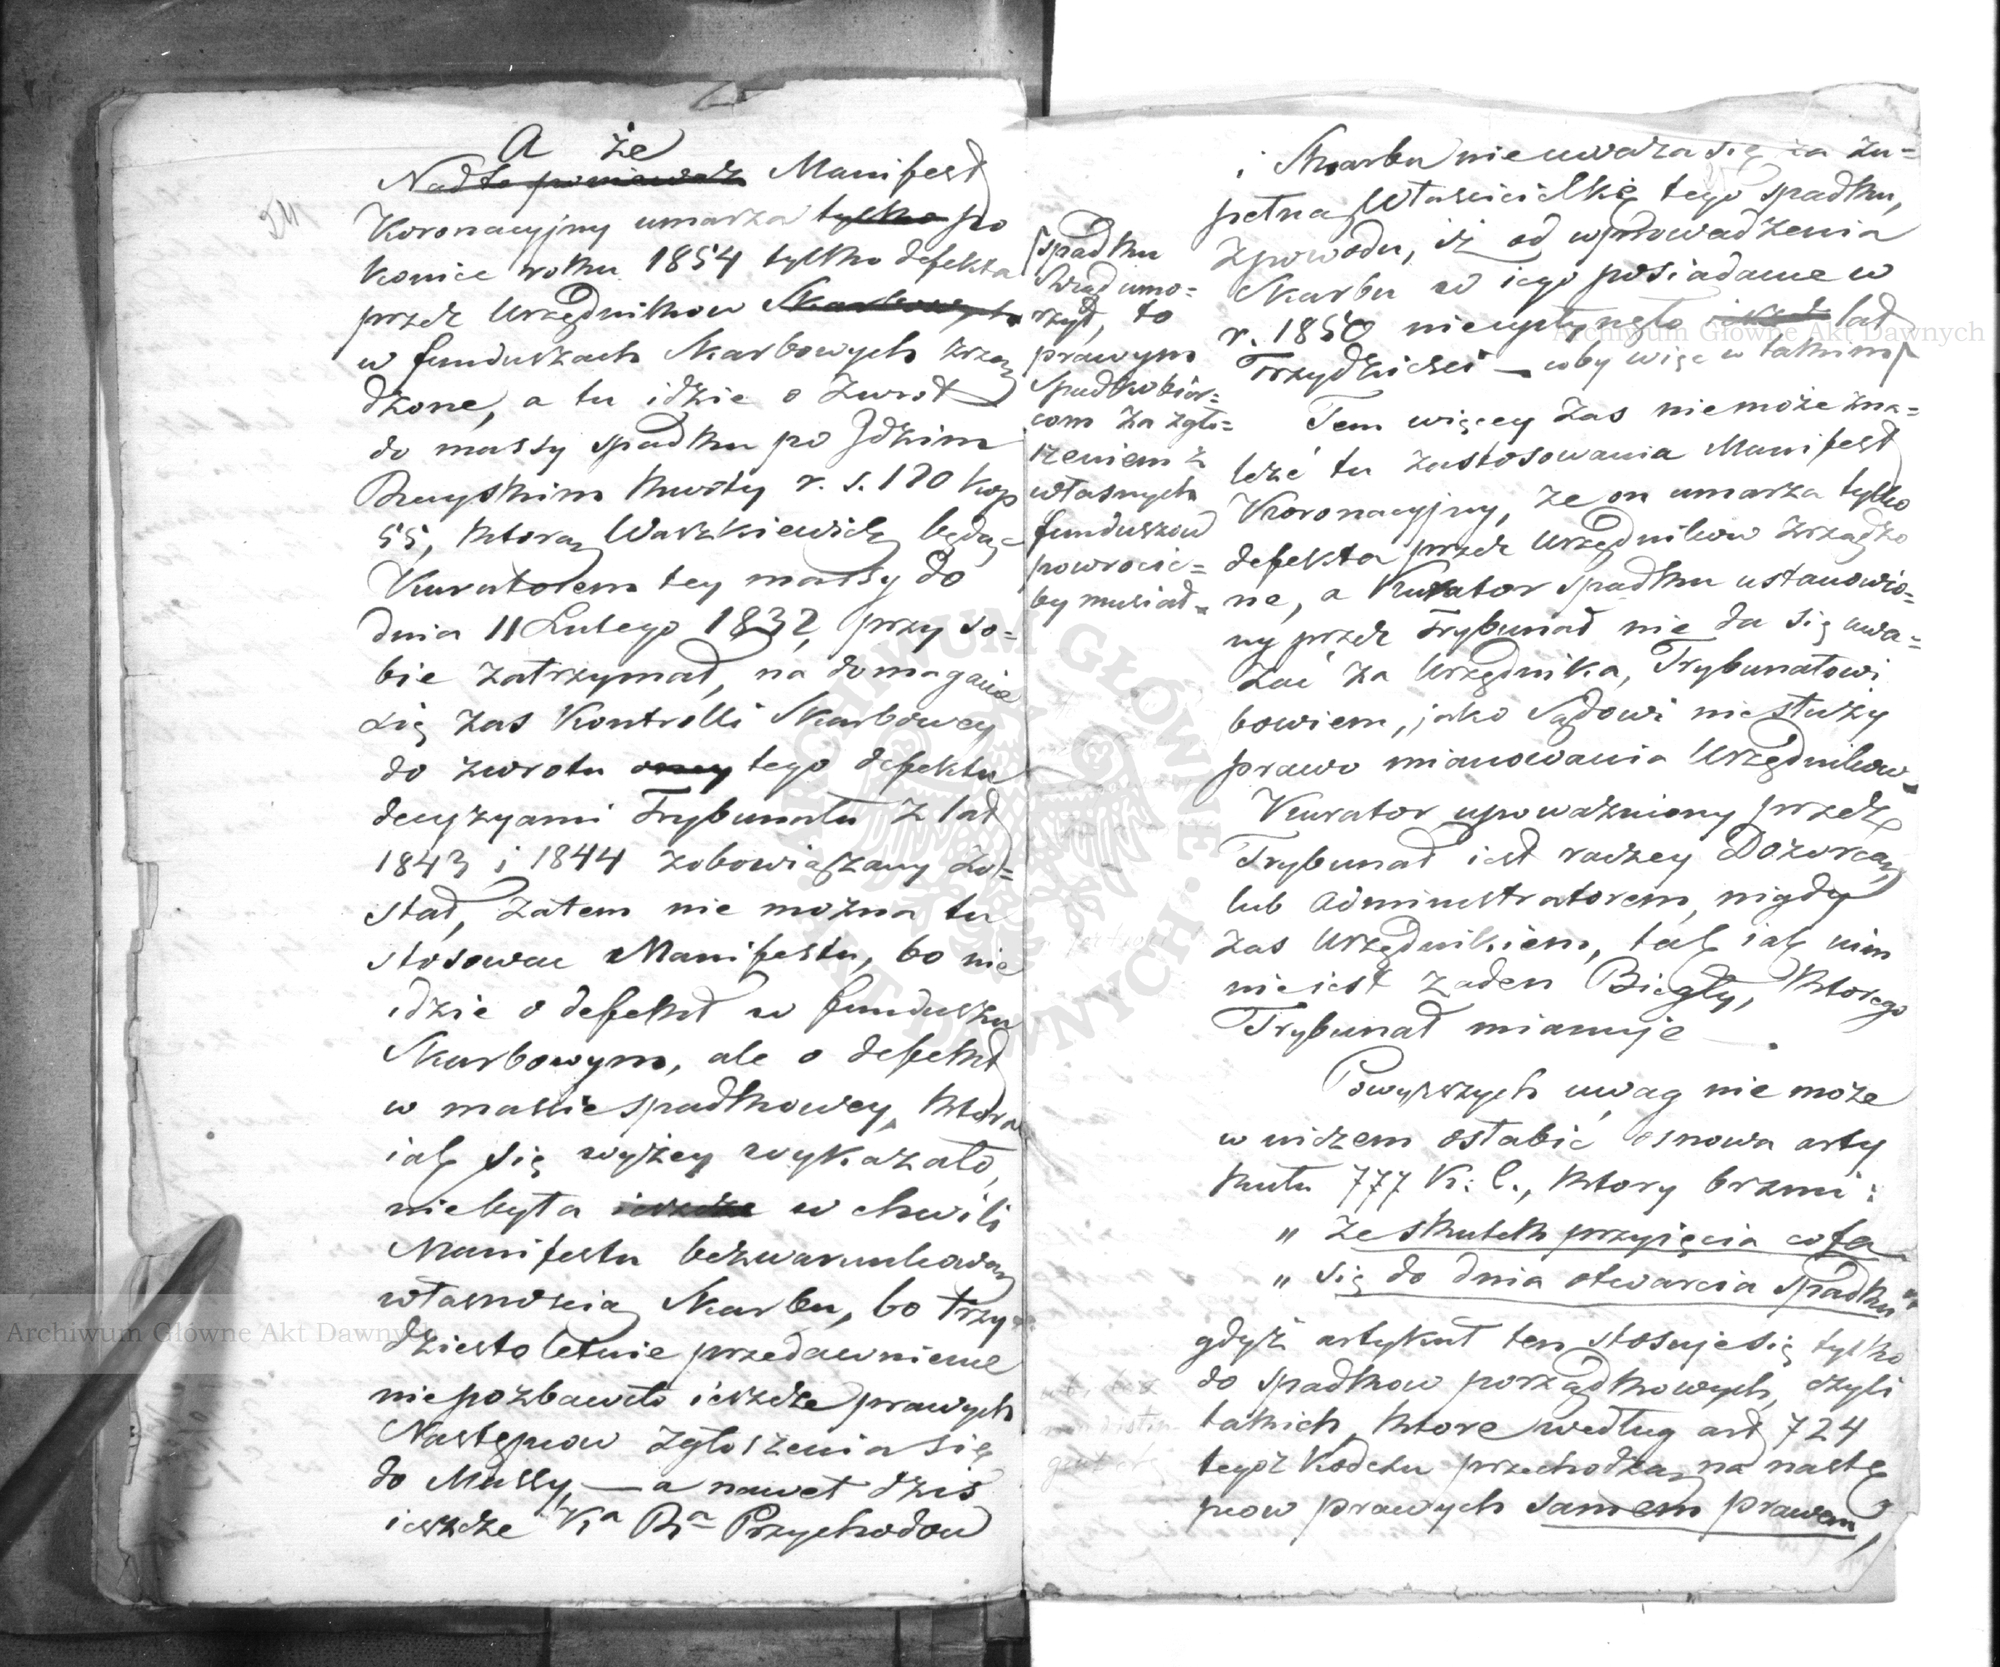 A że
Nadto ponieważ Manifest
Koronacyjny umarza tylko po
koniec roku 1854 tylko defekta
przez Urzędnikow Skarbowych
w funduszach Skarbowych zrzą
dzone, a tu idzie o zwrot
do massy spadku po Idzim
Buyskim kwoty r. s. 180 kop
55, ktorą Waszkiewicz będąc
Kuratorem tey massy do
dnia 11 Lutego 1832 przy so=
bie zatrzymał, na domaganie
się zas Kontrolli Skarbowey
do zwrotu oney tego defektu
decyzyami Trybunału z lat
1843 i 1844 zobowiązany zo=
stał, zatem nie można tu
stosowac Manifestu, bo nie
idzie o defekt w funduszu
Skarbowym, ale o defekt
w massie spadkowey, ktora
iak się wyżey wykazało,
niebyła ieszcze w chwili
Manifestu bezwarunkową
własnością Skarbu, bo trzy=
dziestoletnie przedawnienie
niepozbawiło ieszcze prawych
Następcow zgłoszenia się
do Massy, — a nawet dziś
ieszcze Ka Ra Przychodow
spadku
Rząd umo=
rzył, to
prawym
Spadkobier=
com za zgło=
szeniem z
własnych
funduszow
powrocić=
by musiał
i Skarbu nieuważa się za zu=
pełną Właścicielkę tego spadku,
z powodu, iż od wprowadzenia
Skarbu w iego posiadanie w
r. 1850 nieupłynęło lat
Trzydzieści — coby więc w takim
Tem więcey zas niemoże zna=
leźć tu zastosowania Manifest
Koronacyjny, że on umarza tylko
defekta przez Urzędnikow zrządzo
ne, a Kurator spadku ustanowio=
ny przez Trybunał nie da się uwa=
żać za Urzędnika, Trybunałowi
bowiem, jako Sądowi niesłuży
prawo mianowania Urzędnikow.
Kurator upoważniony przez
Trybunał iest raczey Dozorcą,
lub Administratorem, nigdy
zas Urzędnikiem, tak iak nim
nieiest żaden Biegły, ktorego
Trybunał mianuje —.
Powyższych uwag nie może
w niczem osłabić osnowa arty
kułu 777 K. C., ktory brzmi:
„ że skutek przyięcia cofa
„ się do dnia otwarcia spadku"
gdyż artykuł ten stosuje się tylko
do spadkow porządkowych, czyli
takich, ktore według art 724
tegoż Kodexu przechodzą na nastę
pcow prawych samem prawem,
Archiwum Główne Akt Dawnych
Archiwum Główne Akt Dawnych
ARCHIWUM GŁÓWNE AKT DAWNYCH